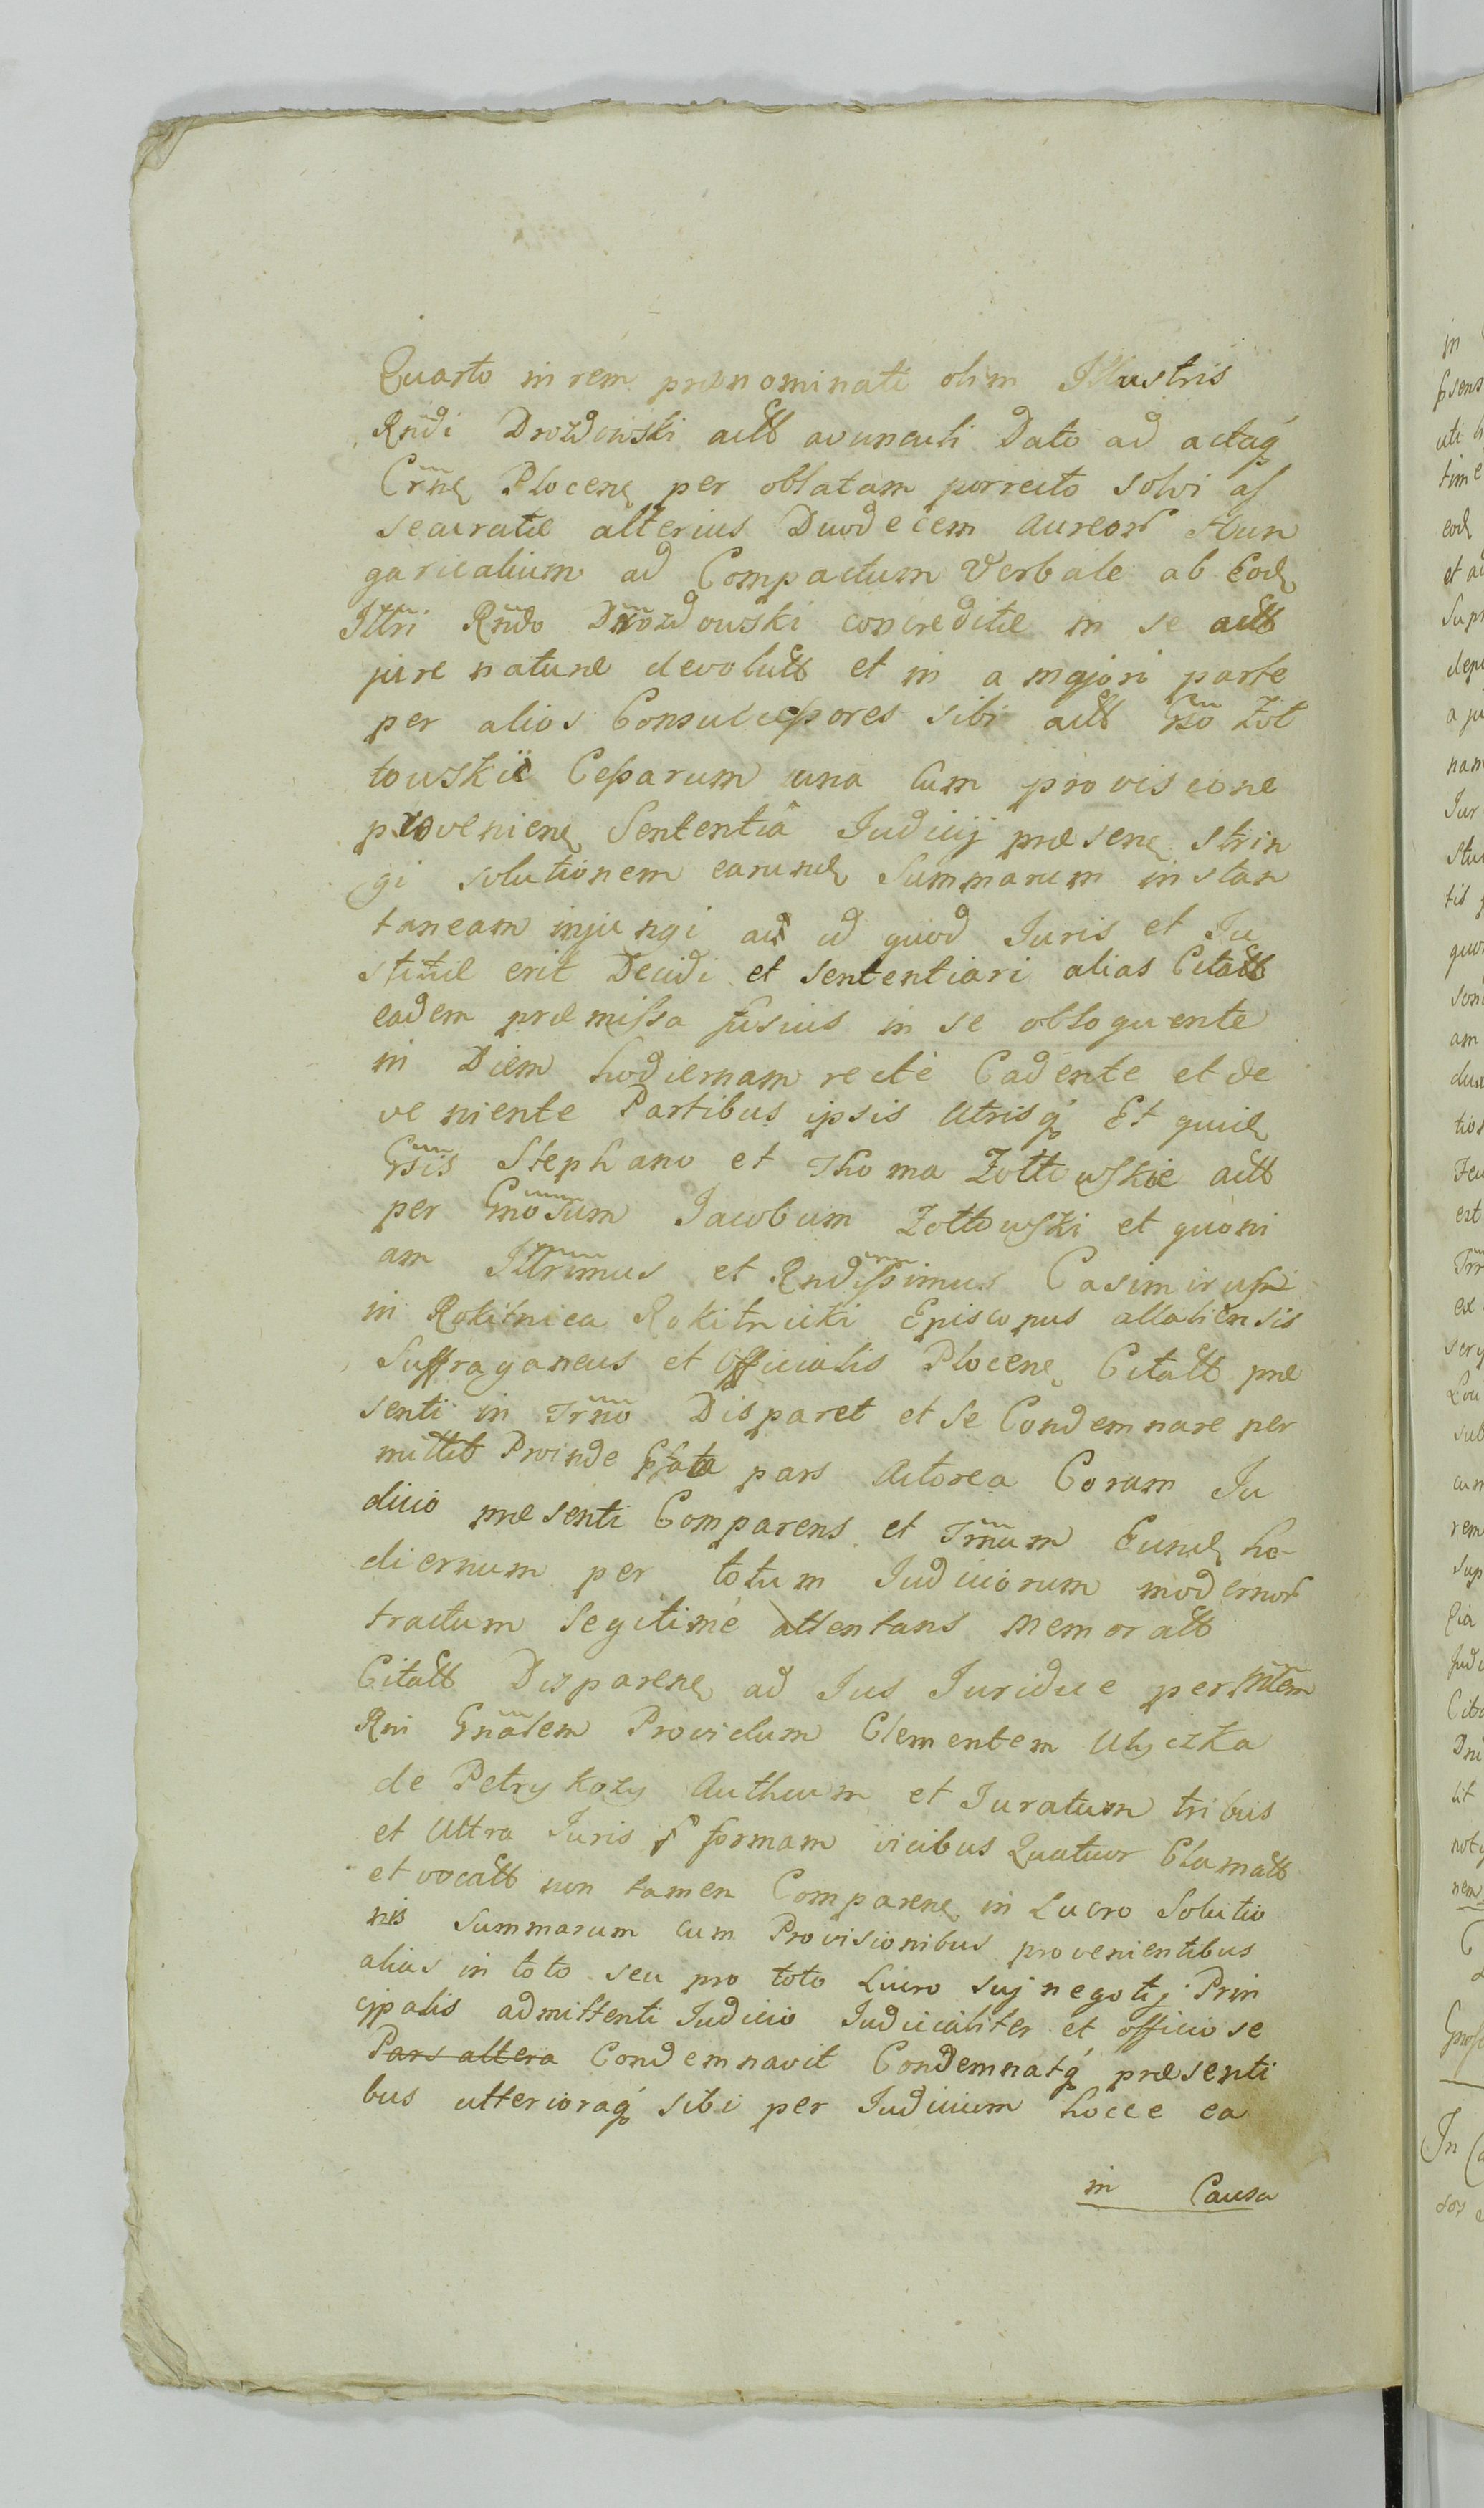 Quarto in rem prænominati olim Illustris
Rndi Drozdowski actt avunculi Dato ad actaq́
Crñe Plocene per oblatam porrecto solvi as
securatæ alterius Duodecem Aureor Hun
garicalium ad Compactum Verbale ab Eod
Illri Rndo Drozdowski concreditæ in se actt
jure naturæ devolutt et in a majori parte
per alios Consuccessores sibi actt Gso Zół
towskie Cessarum una Cum provisione
proveniene Sententiâ Iudicij præsene strin
gi solutionem earund Summarum instan
taneam injungi ac id quod Iuris et Iu
stitiæ erit Decidi et sententiari alias Citatt
eadem præmissa fusius in se obloquente
in Diem hodiernam recte Cadente et de
veniente Partibus ipsis Utrisq́ Et quid
Gsis Stephano et Thoma Zołtowskie actt
per Gnosum Iacobum Zołtowski et quoni
am Illrimus et Rndissimus Casimirus
in Rokitnica Rokitnicki Episcopus allaliensis
Suffraganeus et Officialis Plocene Citatt præ
senti in Trño Disparet et se Condemnare per
mittit Proinde pfata pars Actorea Coram Iu
dicio præsenti Comparens et Trmum Eund ho-
diernum per totum Iudiciorum modernor
tractum Legitime attentans memoratt
Citatt Disparene ad Ius Iuridice per Mtem
Rni Gnalem Providum Clementem Ulyczka
de Petrykozy Authcum et Iuratum tribus
et Ultra Iuris formam vicibus Quatuor Clamatt
et vocatt non tamen Comparene in Lucro Solutio
nis Summarum cum Provisionibus provenientibus
alias in toto seu pro toto Lucro suj negotij Prin
cipalis admittenti Iudicio Iudicialiter et officiose
Pars altera Condemnavit Condemnatq́ præsenti
bus ulterioraq́ sibi per Iudicium hocce ea
in Causa